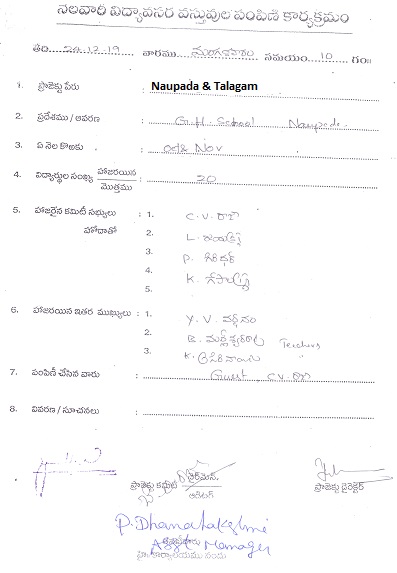 నెలవారీ విద్యావసర వస్తువుల పంపిణీ కార్యక్రమం
తేది 24.12.19 వారము మంగళవారం సమయం 10 గం॥
1. ప్రాజెక్టు పేరు : Naupada & Talagam
2. ప్రదేశము / ఆవరణ : G.H. School Naupada
3. ఏ నెల కొఱకు : Oct & Nov
4. విద్యార్థుల సంఖ్య హాజరయిన / మొత్తము : 20
5. హాజరైన కమిటీ సభ్యులు : 1. C.V. రావు
హోదాతో 2. L.
3. P. శ్రీధర్
4. K. గోపాల
5.
6. హాజరయిన ఇతర ముఖ్యులు : 1. Y.V.
2. B. Teachers
3. K.
7. పంపిణీ చేసిన వారు : Guest, C.V. రావు
8. వివరణ / సూచనలు :
ప్రాజెక్టు కమిటి ఛైర్మెన్.
ఆడిటర్
ప్రాజెక్టు డైరెక్టర్
P. Dhanalakshmi
Asst Manager